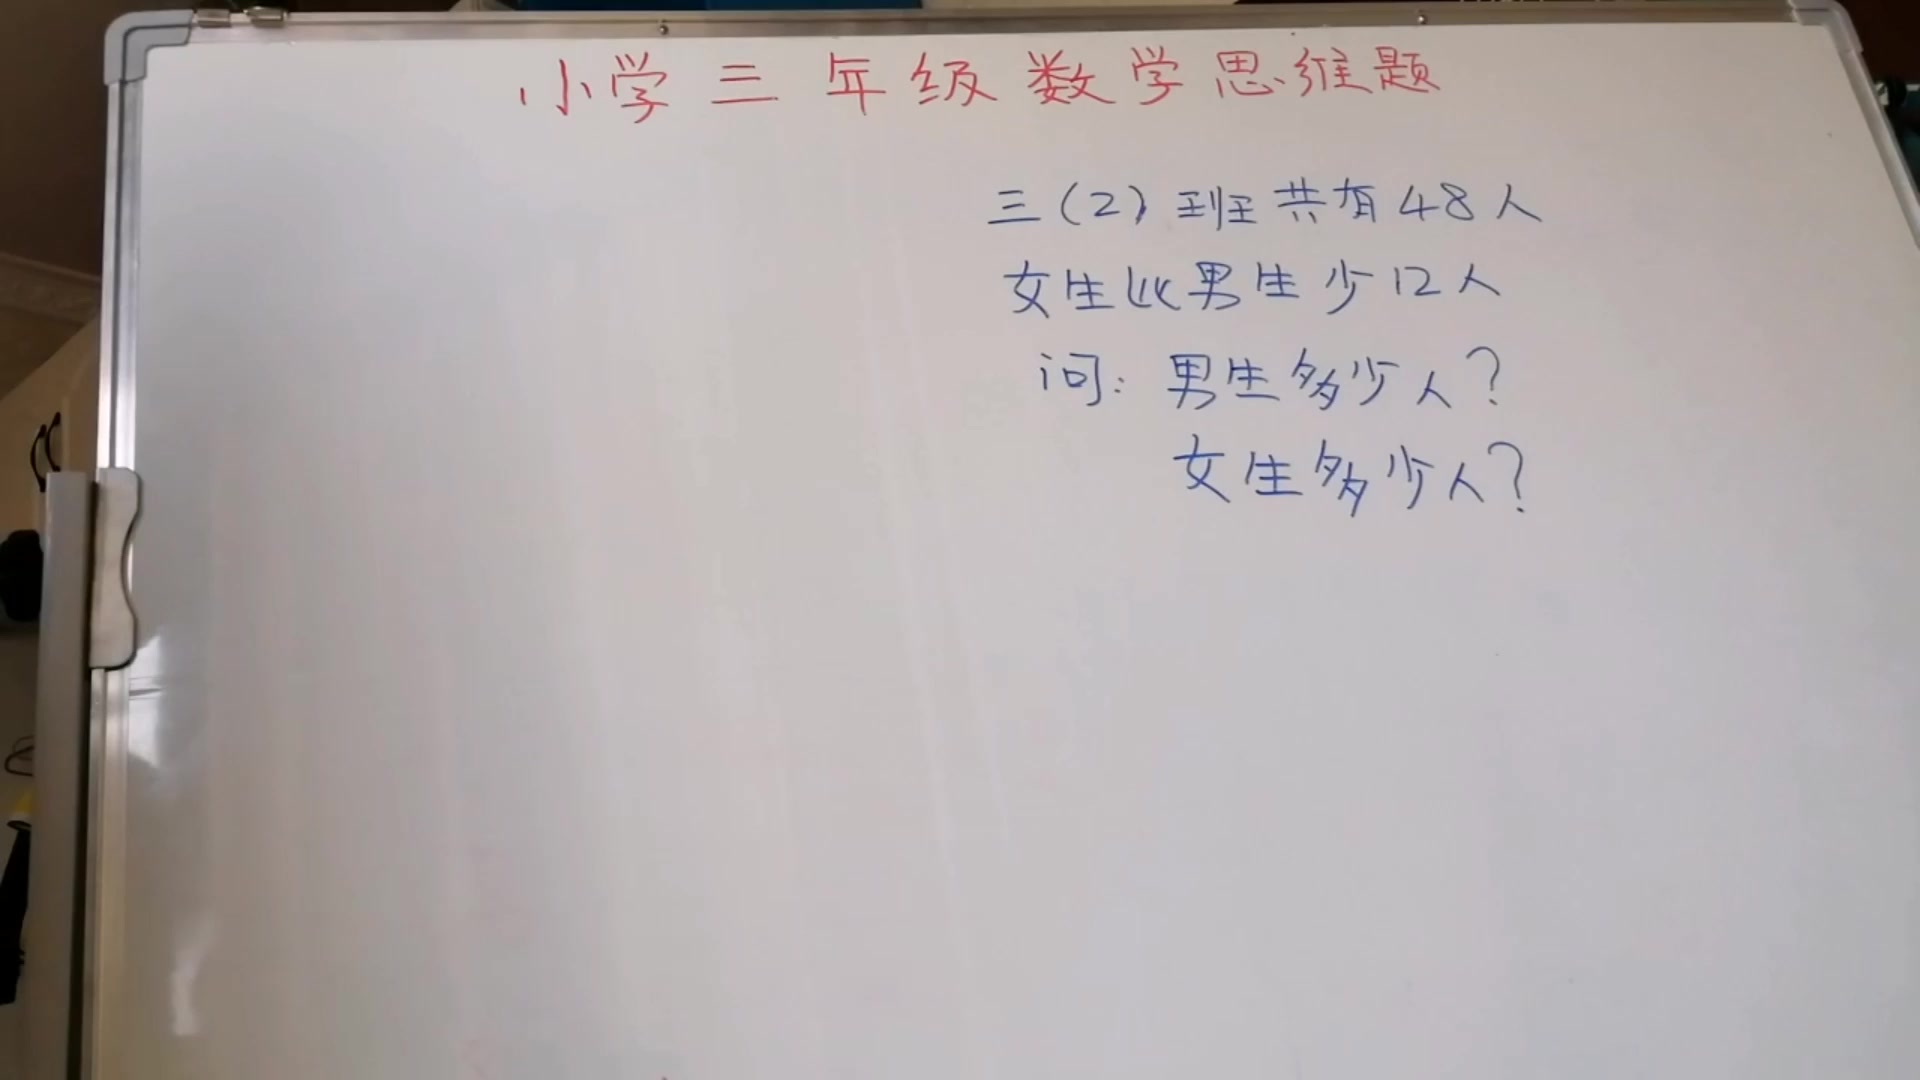 小学三年级数学思维题
三(2)班共有48人
女生比男生少12人
问:男生多少人?
女生多少人?